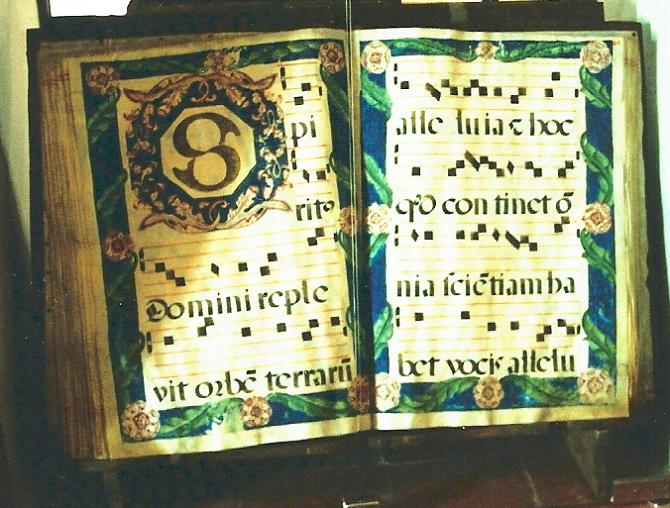 S
pi
ritꝰ
Domini reple
vit orbē terrarū
alle luia ⁊ hoc
qđ con tinet ō
nia sciētiam ha
bet vocis allelu